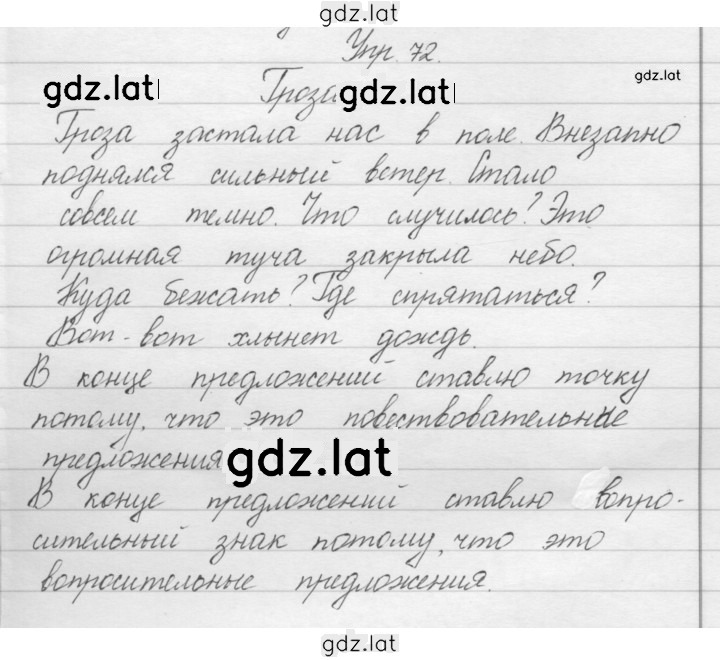 gdz.lat
Упр. 72.
gdz.lat
gdz.lat Гроза gdz.lat
Гроза застала нас в поле. Внезапно
поднялся сильный ветер. Стало
совсем темно. Что случилось? Это
огромная туча закрыла небо.
Куда бежать? Где спрятаться?
Вот-вот хлынет дождь.
В конце предложений ставлю точку
потому, что это повествовательные
предложения gdz.lat
В конце предложений ставлю вопро-
сительный знак потому, что это
вопросительные предложения.
gdz.lat